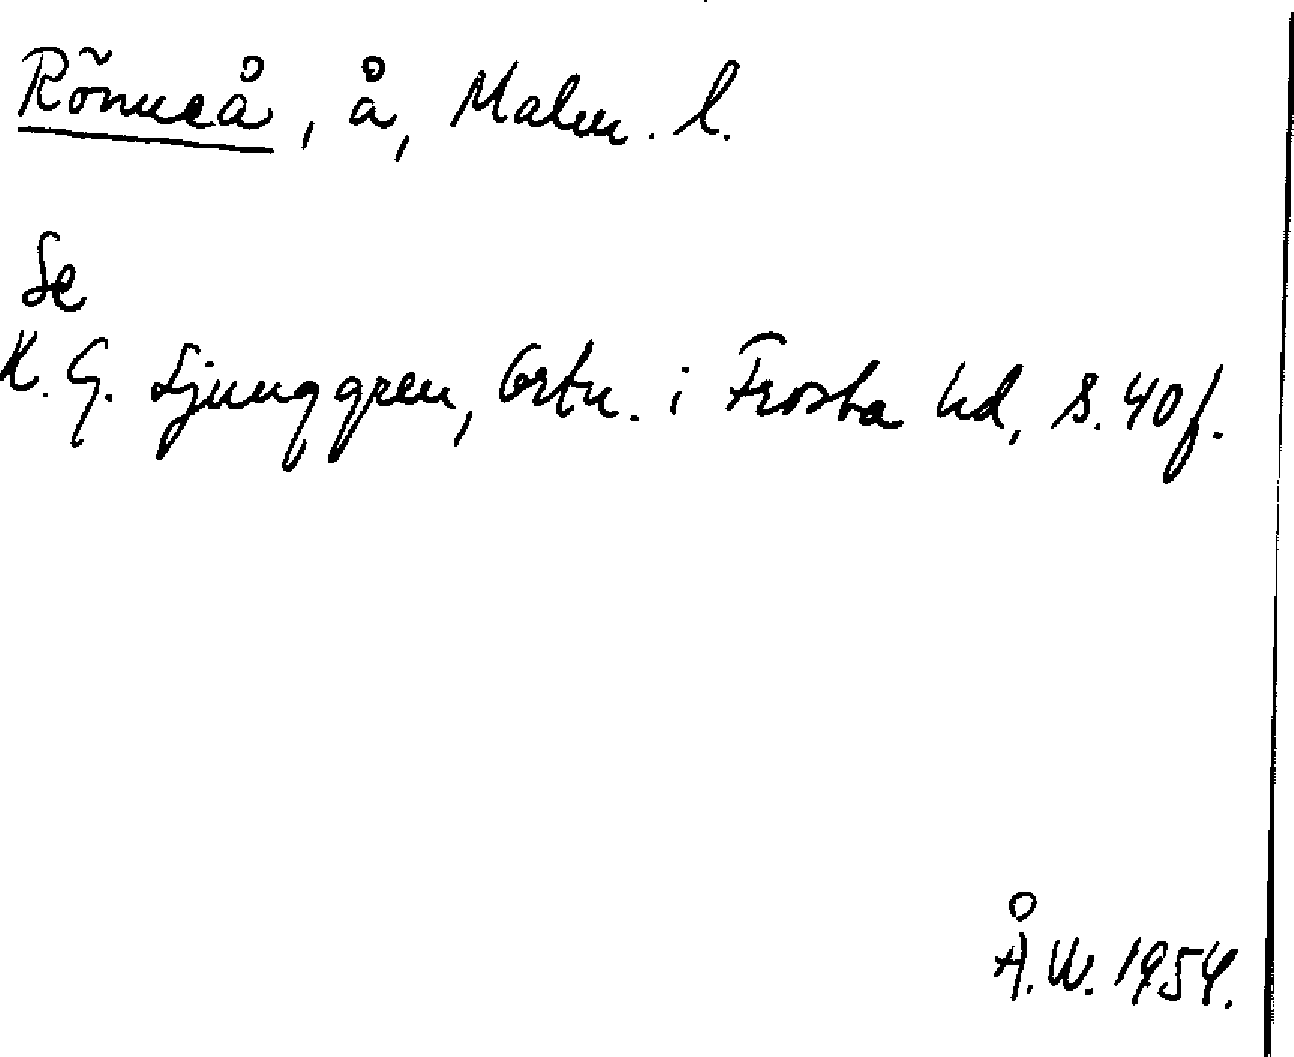 Rönneå, å, Malm. l.
Se
K. G. Ljunggren, Ortn. i Frosta hd, s. 40 f.
Å. W. 1954.